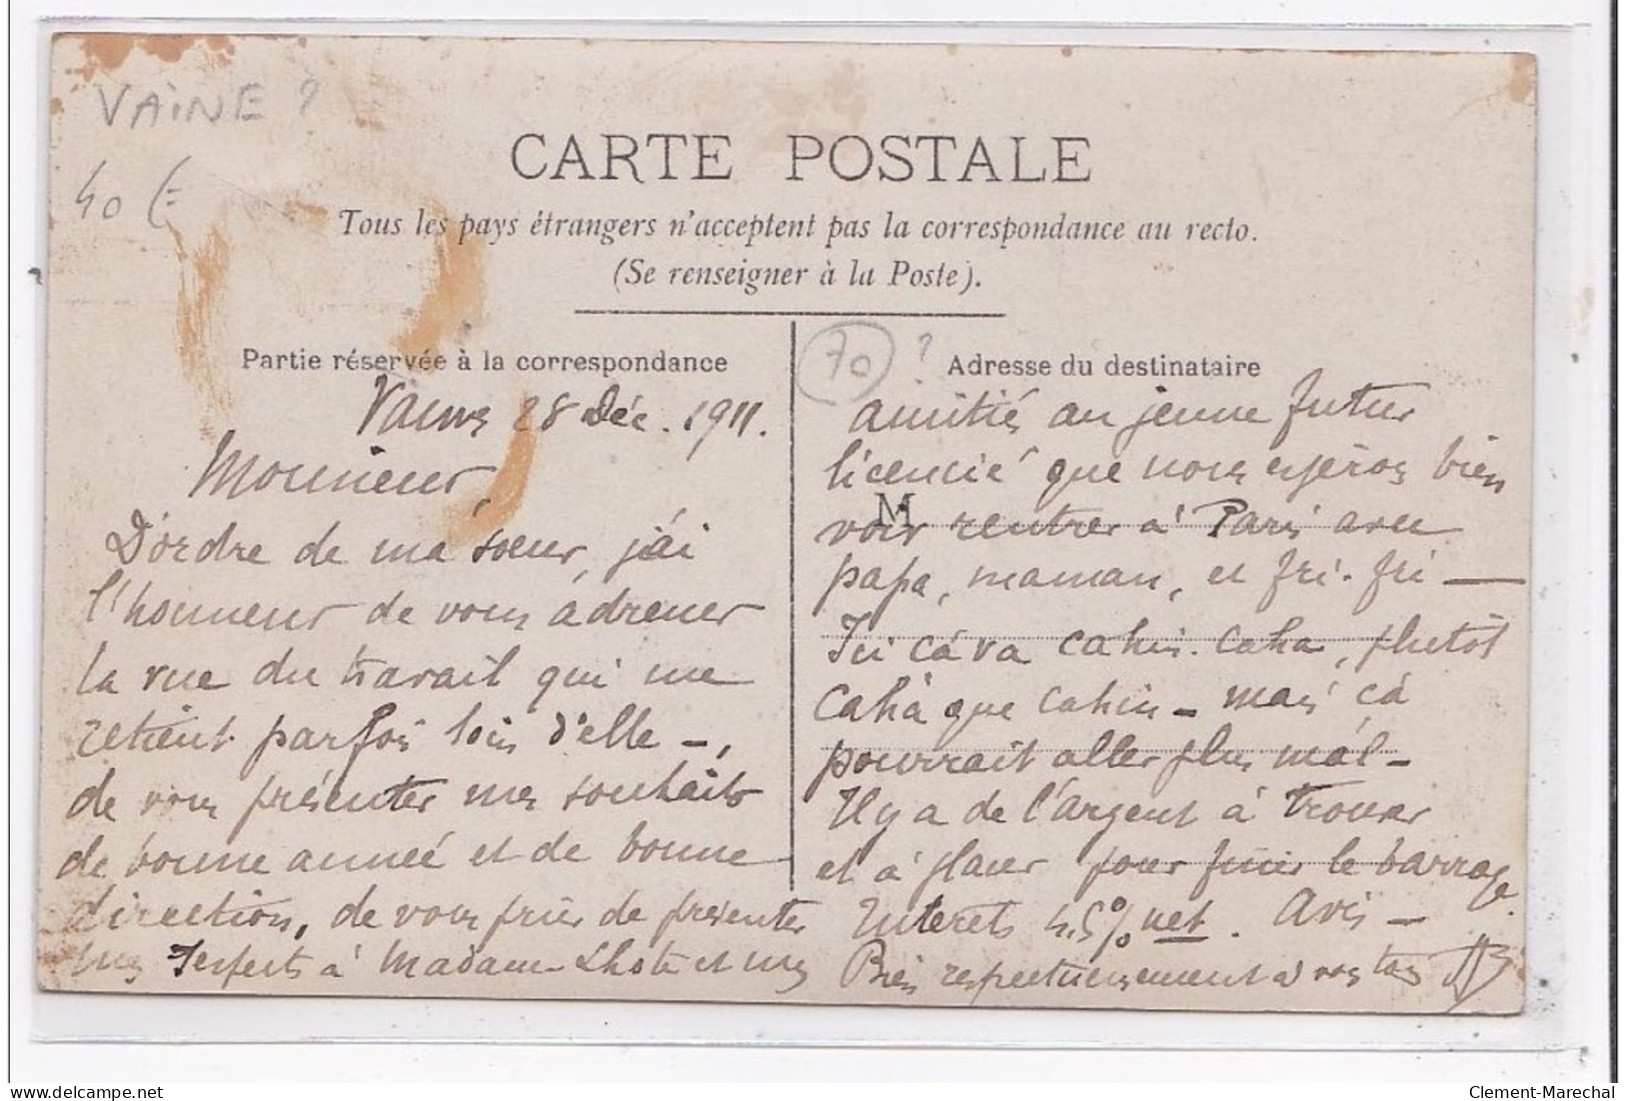 VAINE ?
40 €
CARTE POSTALE
Tous les pays étrangers n'acceptent pas la correspondance au recto.
(Se renseigner à la Poste).
Partie réservée à la correspondance
28 Déc. 1911.
Monsieur,
D'ordre de ma sœur, j'ai
l'honneur de vous adresser
la vue du travail qui me
retient parfois loin d'elle –,
de vous présenter mes souhaits
de bonne année et de bonne
direction, de vous prier de présenter
mes à Madame Lhote et mes
70 ?
Adresse du destinataire
M
amitiés au jeune futur
licencié que nous espérons bien
voir rentrer à Paris avec
papa, maman, et fri-fri —
Ici ça va cahin-caha, plutôt
caha que cahin – mais ça
pourrait aller plus mal –
Il y a de l'argent à trouver
et à placer pour finir le barrage.
Interets 4.5% net. Avis –
Bien respectueusement à vous tous
delcampe.net
Clement-Marechal